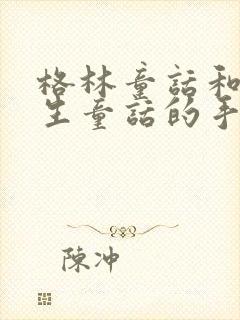 格林童話和
生童話的手
陳冲